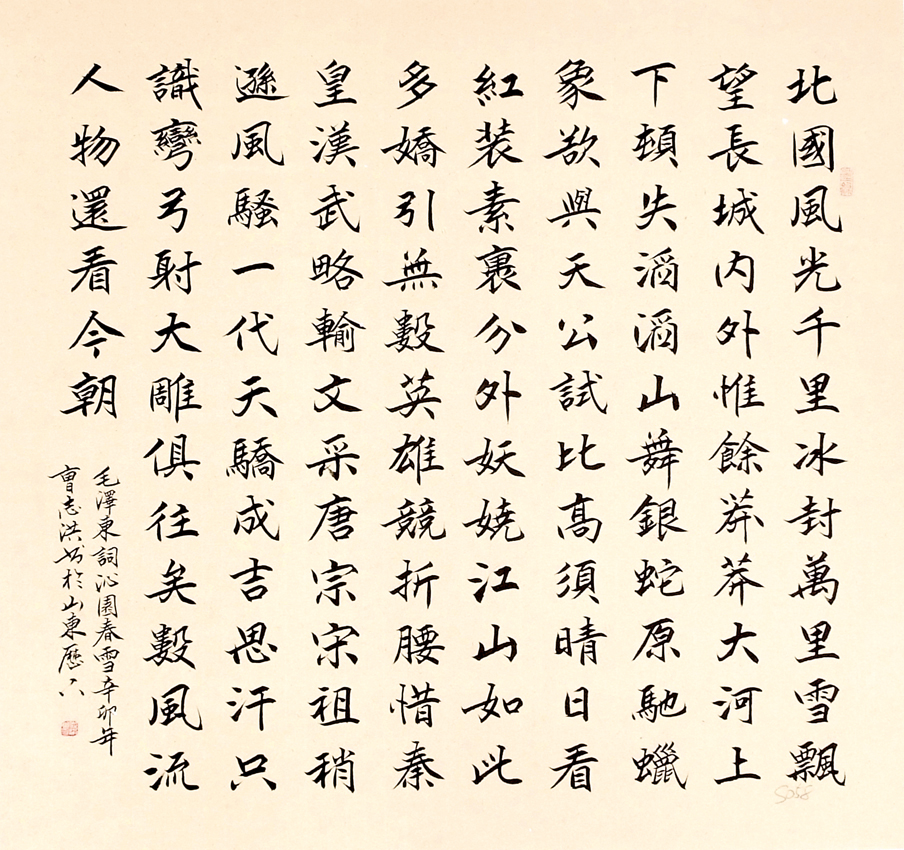 北國風光千里冰封萬里雪飄
望長城内外惟餘莽莽大河上
下頓失滔滔山舞銀蛇原馳蠟
象欲與天公試比高須晴日看
紅装素裹分外妖嬈江山如此
多嬌引無數英雄競折腰惜秦
皇漢武略輸文采唐宗宋祖稍
遜風騷一代天驕成吉思汗只
識彎弓射大雕俱往矣數風流
人物還看今朝
毛澤東詞沁園春雪辛卯年
曹志洪书於山東歷下